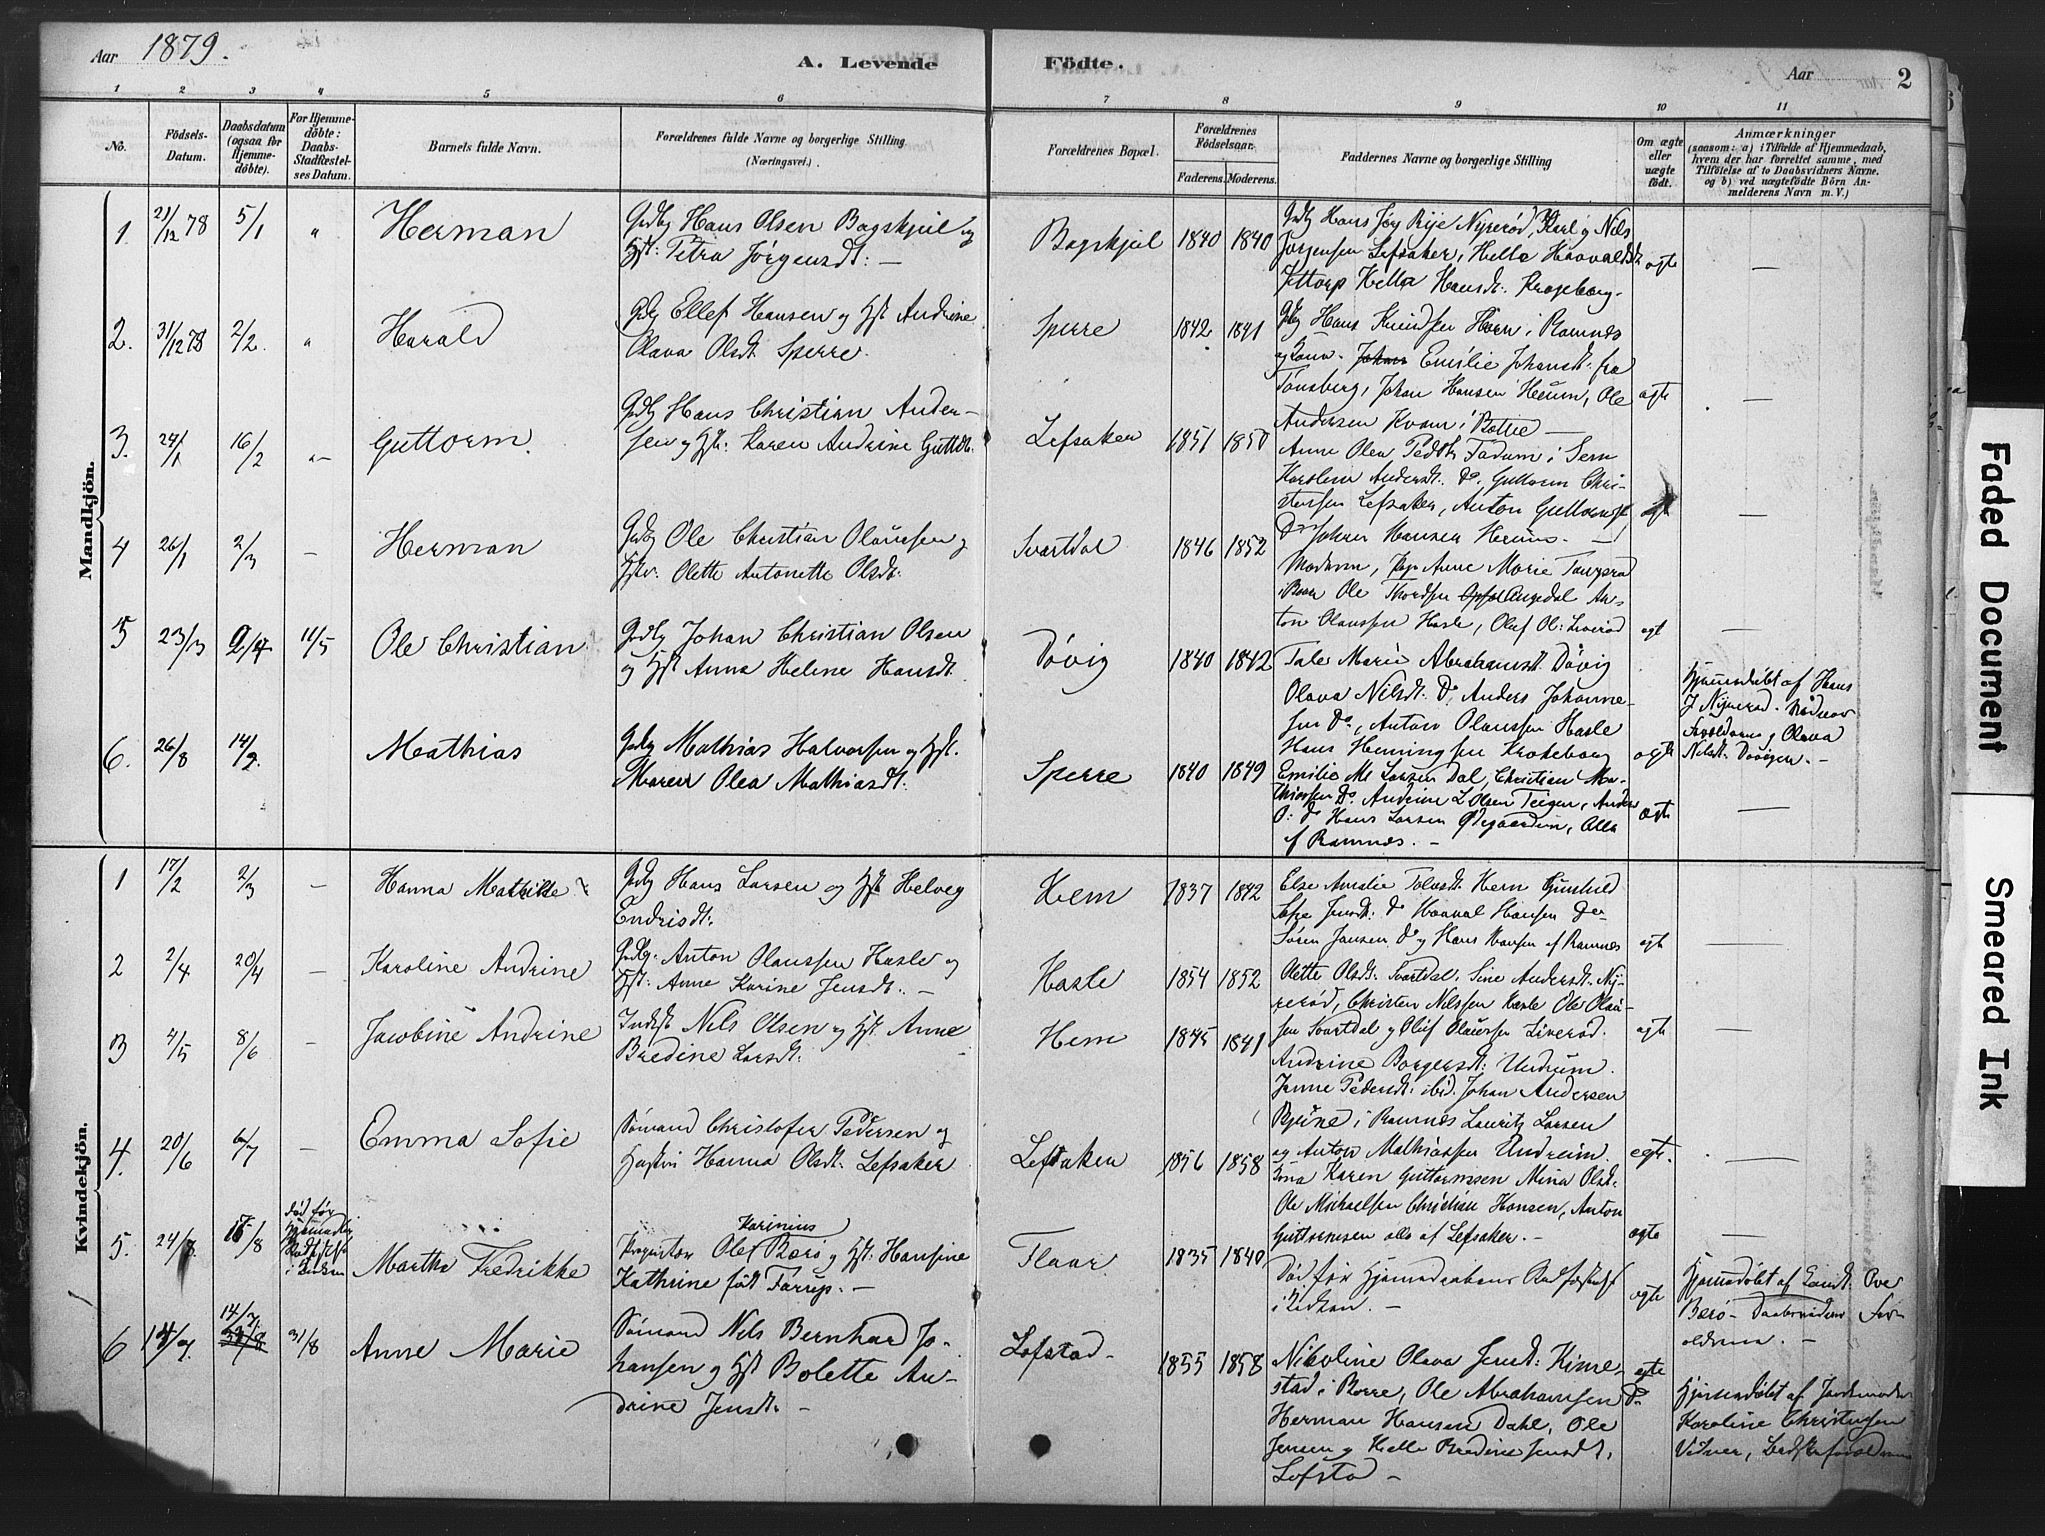 Aar 1879.
A. Levende
Födte.
Aar
2
1 2 3 4 5 6 7 8 9 10 11
No.
Födsels-
Datum.
Daabsdatum
(ogsaa for
Hjemme-
döbte).
For Hjemme-
döbte:
Daabs-
Stadfæstel-
ses Datum.
Barnets fulde Navn.
Forældrenes fulde Navne og borgerlige Stilling
(Næringsvei).
Forældrenes Bopæl.
Forældrenes
Födselsaar.
Faderens. Moderens.
Faddernes Navne og borgerlige Stilling
Om ægte
eller
uægte
födt.
Anmærkninger
(saasom: a) i Tilfælde af Hjemmedaab,
hvem der har forrettet samme, med
Tilföielse af to Daabsvidners Navne.
og b) ved uægtefödte Börn An-
melderens Navn m. V.)
Mandkjön.
1. 21/12 78 5/1 " Herman
Gdbg Hans Olsen Bagskjul og
Hst: Petra Jörgensdt: —
Bagskjul 1840 1840
Nyrerød, Karl g Nils
Jörgensen Lefsaker, Helle
Helle Hansdt: Krogeborg
ægte —
2. 31/12 78 2/2. " Harald
Gdbg Ellef Hansen og Hst Andrine
Olava Olsdt Sperre.
Sperre 1842 1841
Gdbg Hans Knudsen Horn i Ramnes
og Kone. Emilie Johansdt: fra
Tönsberg, Johan Hansen Heum, Ole
Andersen Kvam i Borre —
ægte —
3. 24/1 16/2 "— Guttorm.
Gdbg Hans Christian Ander-
sen og Hst: Karen Andrine Guttdt:
Lefsaken 1851 1850
Anne Olea Pedsdt Fadum i Sem
Karoline Andersdt: Do. Guttorm Chri-
stensen Lefsaker, Anton Guttormsen
Do Johan Hansen Heum. —
—
4 26/1 2/3 — Herman
Gdbg Ole Christian Olaussen g
Hst: Olette Antonette Olsdt:
Svartdal 1846 1852
Moderen, Pige Anne Marie
i Borre Ole Thordsen Angedal An-
ton Olaussen Hasle, Oluf Ol: Liverød
ægt —
5 23/3 9/4 11/5 Ole Christian
Gdbg Johan Christian Olsen
og Hst Anna Helene Hansdt.
Døvig 1840 1842
Tale Marie Abrahamsdt. Døvig
Olava Nilsdt. Do, Anders Johanne-
sen Do, Anton Olaussen Hasle
Hans Henningsen Krokeborg
ægte
Hjemmedöbt af Hans
J Nyrerød.
Forældrene g Olava
Nilsdt. Døvigen. —
6. 26/8 14/9. Mathias
Gdbg Mathias Halvorsen og Hst.
Maren Olea Mathiasdt:
Sperre 1840 1849
Emilie M. Larsen Dal, Christian Ma-
thiassen Do. Andrine L Olsen Teigen, Anders
O: Do Hans Larsen Ødegaarden, Alle
af Ramnes. —
ægte —
Kvindekjön.
1 17/2 2/3 — Hanna Mathilde
Gdbg Hans Larsen og Hst Helveg
Endrisdt:
Hem 1837 1842
Else Amalie Tolvsdt. Hem Gunhild
Sofie Jensdt: Do Haaval Hansen Do
Søren Jansen Do g Hans Hansen af Ramnes
ægt —
2 2/4 20/4 — Karoline Andrine
Gdbg: Anton Olaussen Hasle og
Hst: Anne Karine Jensdt: —
Hasle 1854 1852
Olette Olsdt: Svartdal, Sine Andersdt. Ny-
rerød, Christen Nilssen Hasle Ole Olau-
sen Svartdal g Oluf Olaussen Liverød.
ægt —
3 4/5 8/6 — Jacobine Andrine
Inderst Nils Olsen og Hst. Anne
Bredine Larsdt:
Hem 1845 1841
Andrine Borgersdt: Undrum.
Jenne Pedersdt: ibid. Johan Andersen
Bjune i Ramnes Lauritz Larsen
og Anton Mathiassen Undrum.
ægte.
4. 20/6 6/7 — Emma Sofie
Sømand Christofer Pedersen og
Hustru Hanna Olsdt: Lefsaker
Lefsaken 1856 1858
Karen Guttormssen Mina Olsdt:
Ole Michaelsen Christian Hansen, Anton
Guttormsen alle af Lefsaker. —
ægte —
5. 24/7. 17/8 død før
Martha Fredrikke
Proprietær Olof Karinius Barø g Hst: Hansine
Kathrine født Farrup. —
Flaar 1835 1840
Død før Hjemmedaabens Stadfæstelse
i Kirken. —
ægte
Hjemmedöbt af Ove
Barø — Daabsvidner For-
ældrene. —
6 14/7. 14/7. 31/8 Anne Marie
Sømand Nils Bernhard Jo-
hansen g Hst Bolette An-
drine Jensdt: —
Lofstad — 1855 1858
Nikoline Olava Jensdt: Kime-
stad i Borre, Ole Abrahamsen Do
Herman Hansen Dahl, Ole
Jensen g Helle Bredine Jensdt,
Lofstad —
ægte
Hjemmedöbt af Jordemoder
Karoline Christensen
Vidner,
Faded Document
Smeared Ink